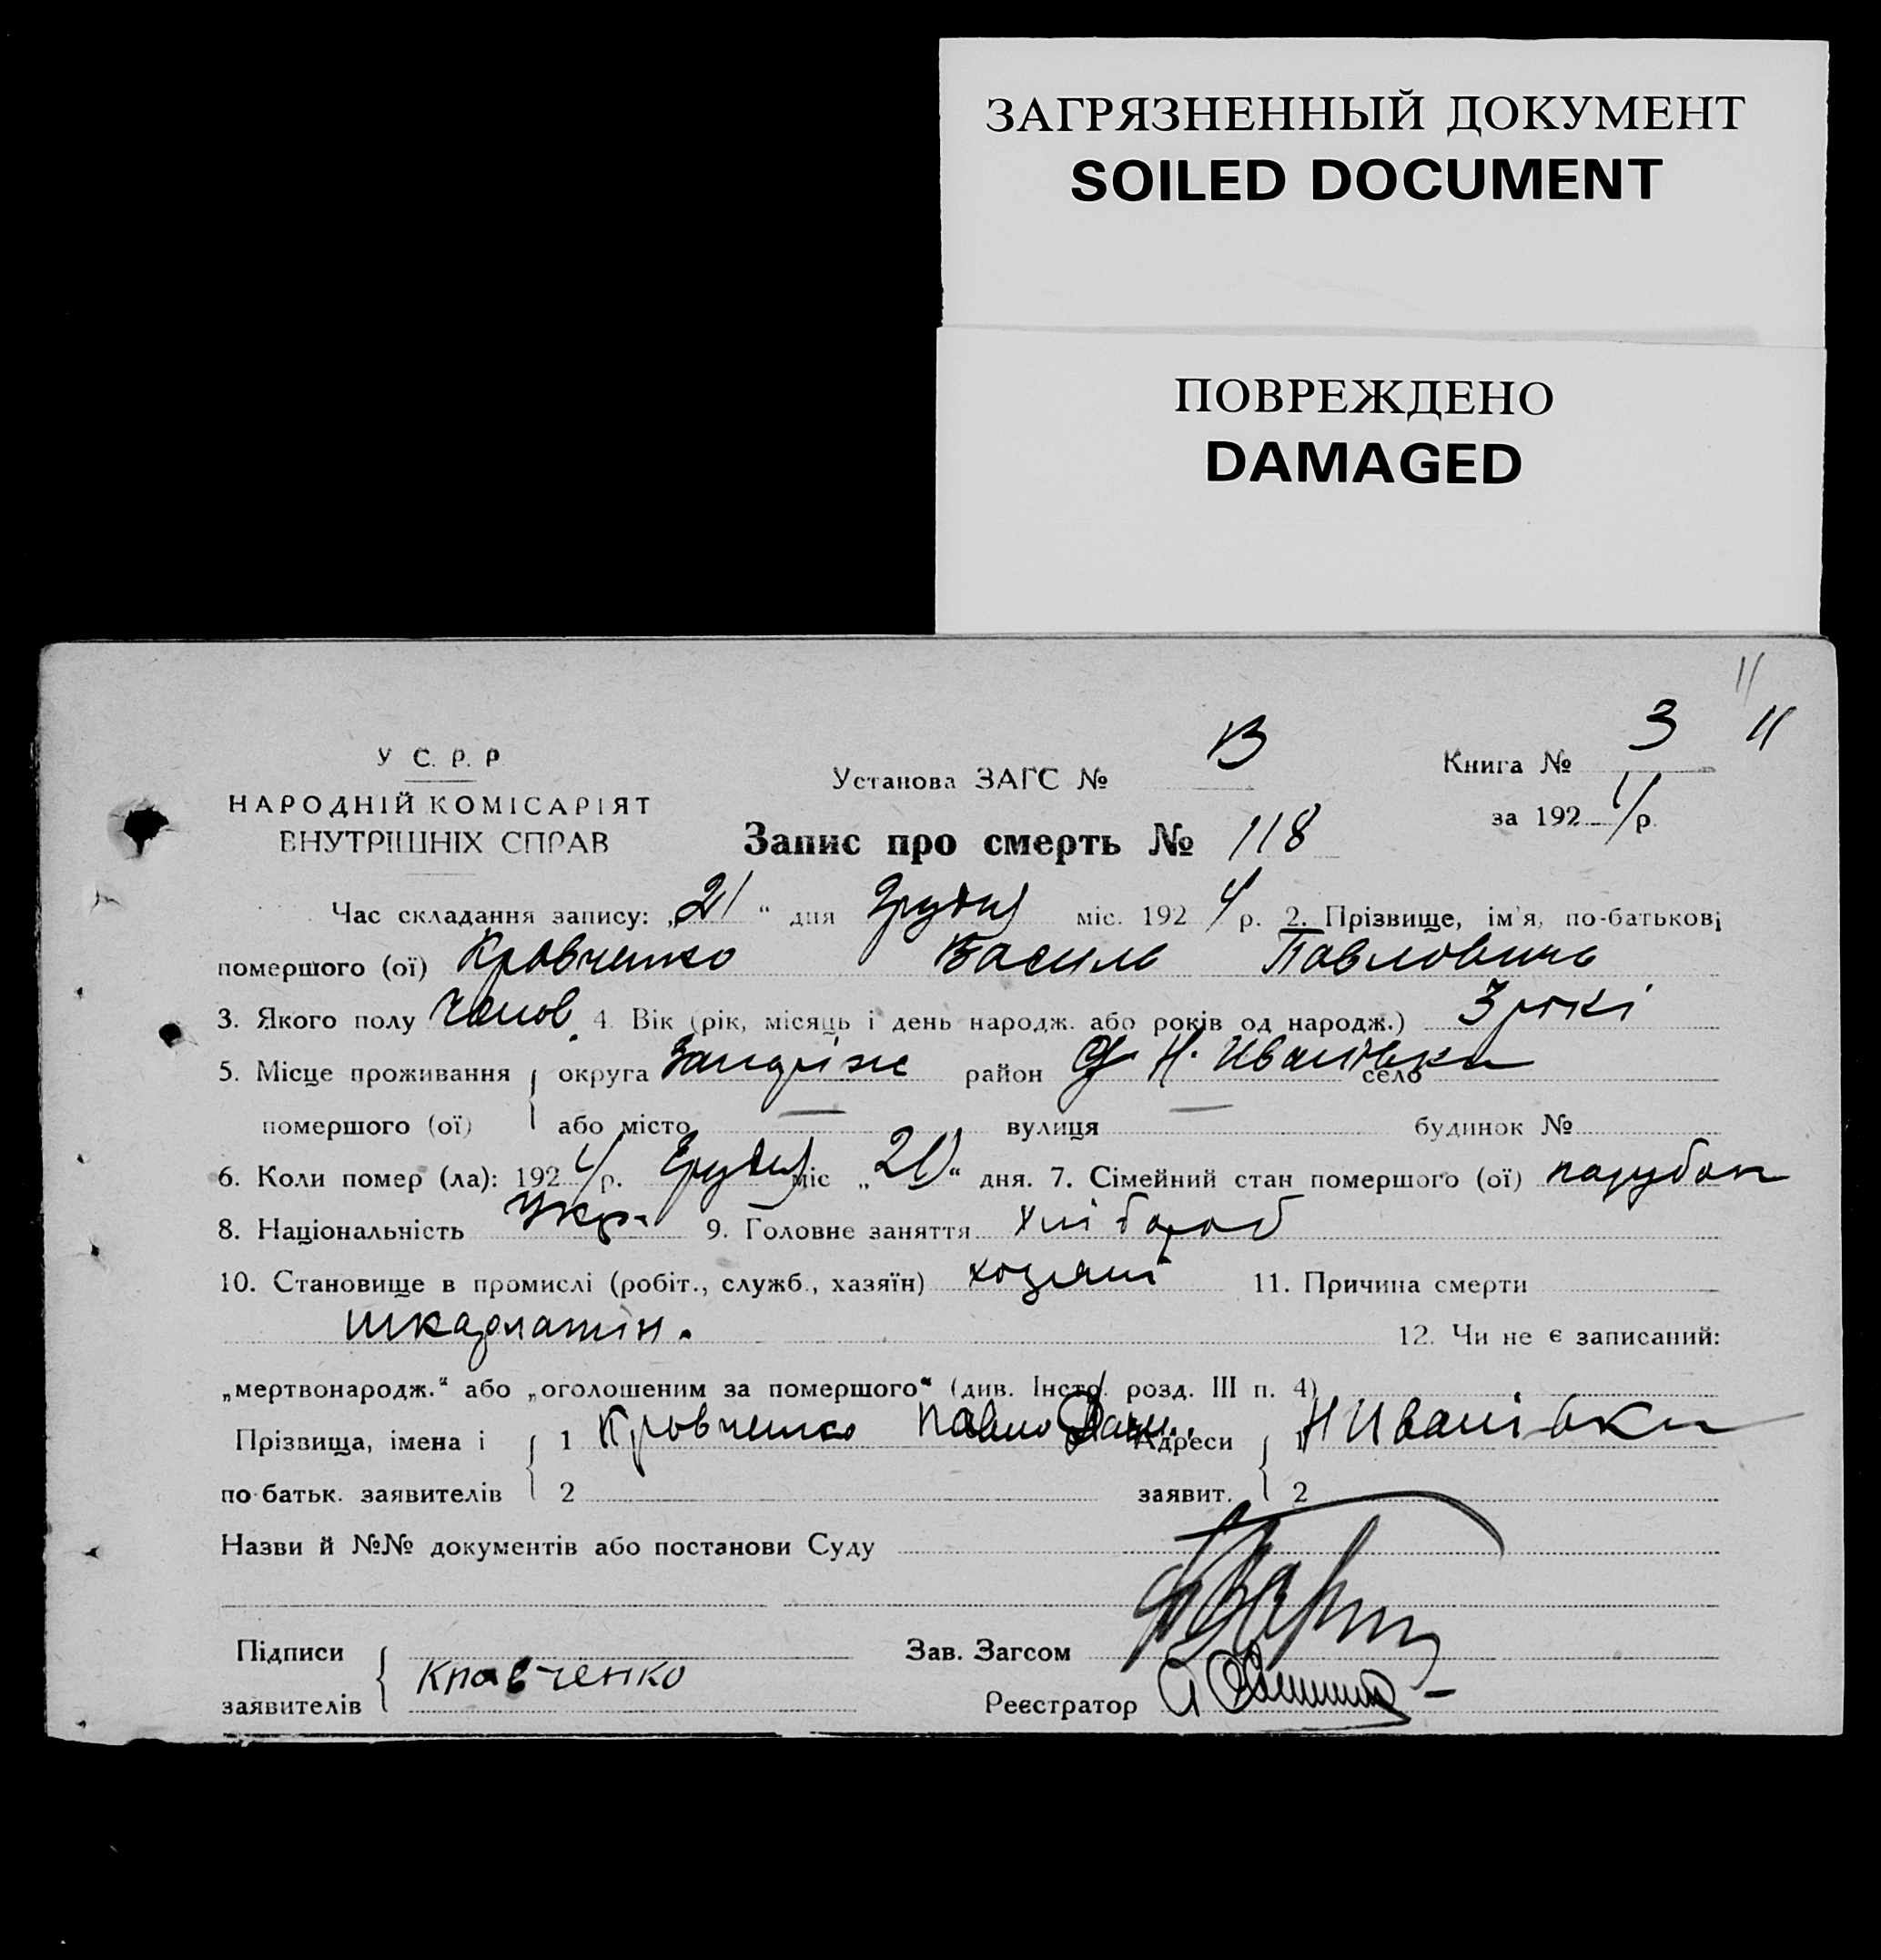 ЗАГРЯЗНЕННЫЙ ДОКУМЕНТ
SOILED DOCUMENT
ПОВРЕЖДЕНО
DAMAGED
11
У С. Р. Р
НАРОДНІЙ КОМІСАРІЯТ
ВНУТРІШНІХ СПРАВ
Установа ЗАГС №
Книга № 3 11
за 192 4 р.
Запис про смерть № 118
Час складання запису: „21“ дня Грудня міс. 192 4 р. 2. Прізвище, ім'я, по-батькові
помершого (ої) Кравченко Василь Павловичь
3. Якого полу чолов. 4. Вік (рік, місяць і день народж. або років од народж.) 3 рокі
5. Місце проживання округа Запоріжс район Н. Иванівка село
помершого (ої) або місто — вулиця — будинок №
6. Коли помер (ла): 192 4 р. Грудня міс „20“ дня. 7. Сімейний стан помершого (ої) парубок
8. Національність Укр. 9. Головне заняття хлібороб
10. Становище в промислі (робіт., служб., хазяїн) хозяїні 11. Причина смерти
шкарлатін. 12. Чи не є записаний:
„мертвонародж.“ або „оголошеним за помершого“ (див. Інстр. розд. III п. 4)
Прізвища, імена і 1 Кравченко Павло Адреси 1 Н Иванівка
по-батьк. заявителів 2 заявит. 2
Назви й №№ документів або постанови Суду
Підписи Зав. Загсом
заявителів Кравченко Реєстратор